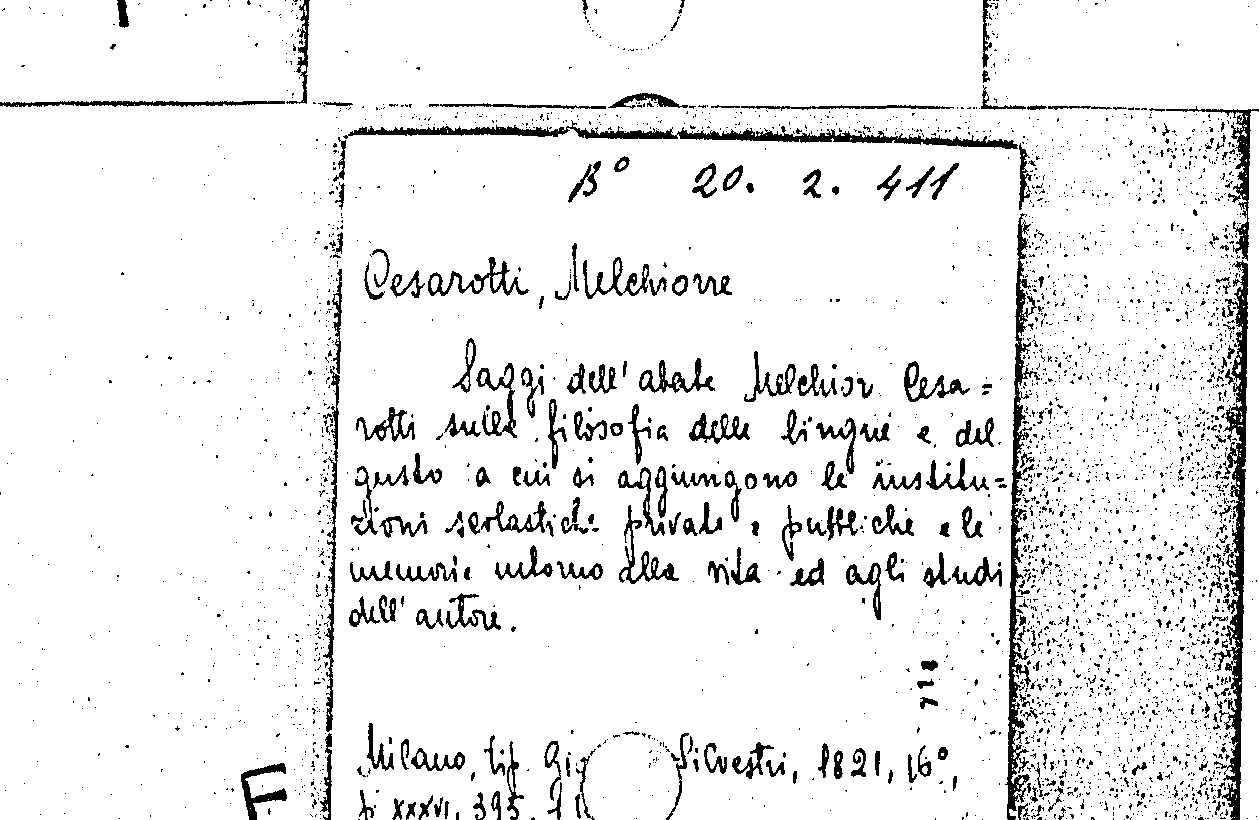 B° 20. 2. 411
Cesarotti, Melchiorre
Saggi dell'abate Melchior Cesa=
rotti sulla filosofia delle lingue e del
gusto a cui si aggiungono le institu=
zioni scolastiche private e pubbliche e le
memorie intorno alla vita ed agli studi
dell'autore.
Milano, tip. Silvestri, 1821, 16°,
p. XXXVI, 395.
F